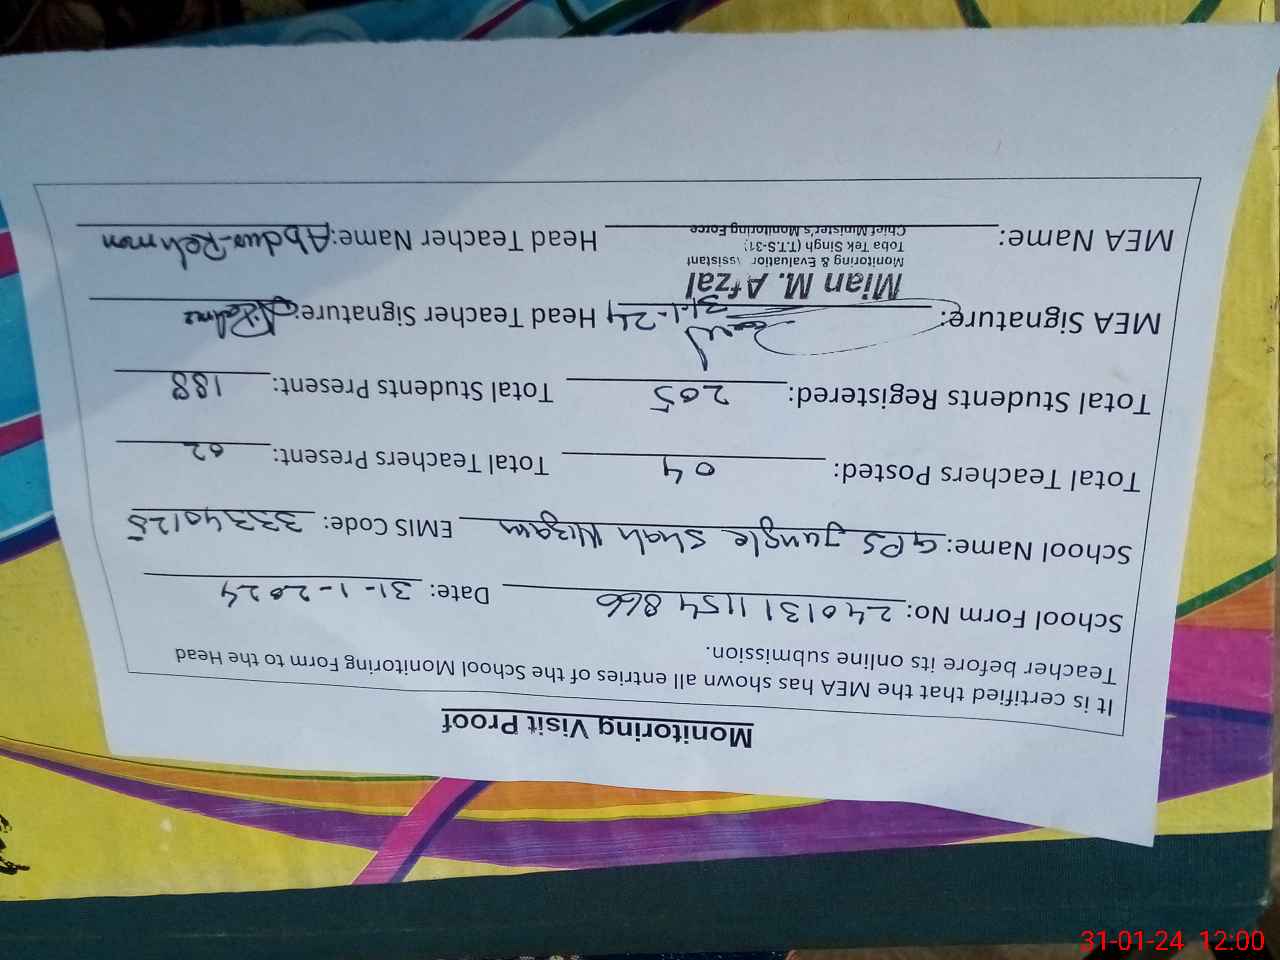 Monitoring Visit Proof
It is certified that the MEA has shown all entries of the School Monitoring Form to the Head
Teacher before its online submission.
School Form No: 240131 1154 866 Date: 31-1-2024
School Name: GPS Jungle Shah Nizam EMIS Code: 33340125
Total Teachers Posted: 04 Total Teachers Present: 02
Total Students Registered: 205 Total Students Present: 188
MEA Signature: 31-1-24 Head Teacher Signature:
Mian M. Afzal
Monitoring & Evaluation Assistant
Toba Tek Singh (T.T.S-31)
Chief Minister's Monitoring Force
MEA Name: Head Teacher Name: Abdur-Rehman
31-01-24 12:00